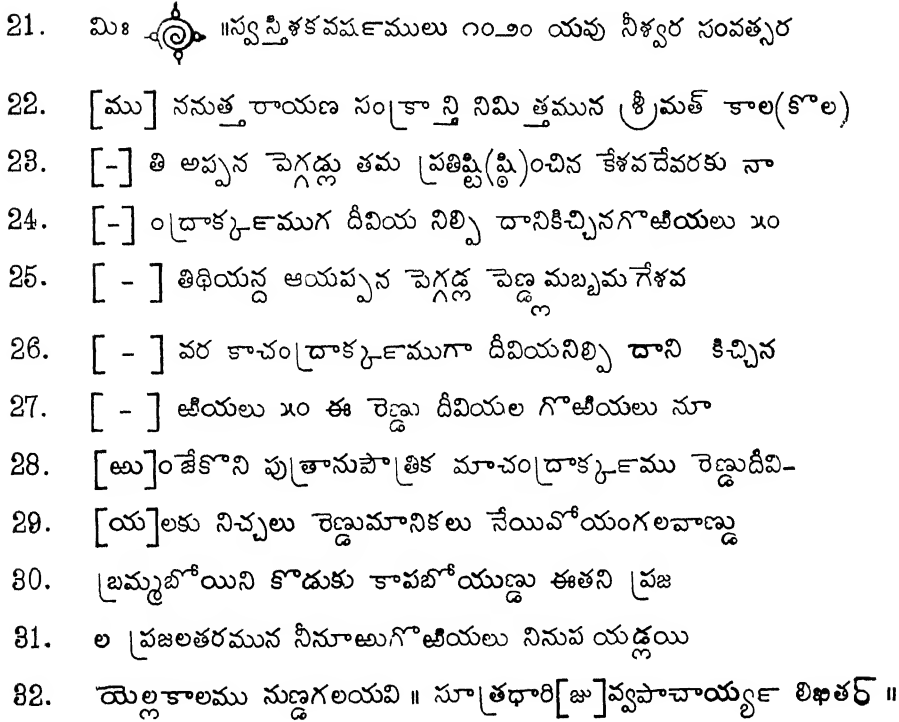 21. మిః ॥స్వస్తిశకవష౯ములు ౧౦౨౦ యవు నీశ్వర సంవత్సర
22. [ము] ననుత్తరాయణ సంక్రాన్తి నిమిత్తమున శ్రీమత్ కాల(కొల)
23. [-] తి అప్పన పెగ్గడ్లు తమ ప్రతిష్టి(ష్ఠి)ంచిన కేశవదేవరకు నా
24. [-] ంద్రాక్క౯ముగ దీవియ నిల్పి దానికిచ్చినగొఱియలు ౫౦
25. [ - ] తిథియన్ద ఆయప్పన పెగ్గడ్ల పెణ్డ్లమబ్బమ గేశవ
26. [ - ] వర కాచంద్రాక్క౯ముగా దీవియనిల్పి దాని కిచ్చిన
27. [ - ] ఱియలు ౫౦ ఈ రెణ్డు దీవియల గొఱియలు నూ
28. [ఱు]ంజేకొని పుత్రానుపౌత్రిక మాచంద్రాక్క౯ము రెణ్డుదీవి-
29. [య]లకు నిచ్చలు రెణ్డుమానికలు నేయివోయంగలవాణ్డు
30. బ్రమ్మబోయిని కొడుకు కాపబోయుణ్డు ఈతని ప్రజ
31. ల ప్రజలతరమున నీనూఱుగొఱియలు నినుప యడ్లయి
32. యెల్లకాలము నుణ్డగలయవి ॥ సూత్రధారి[జు]వ్వపాచాయ్య౯ లిఖితర్ ॥